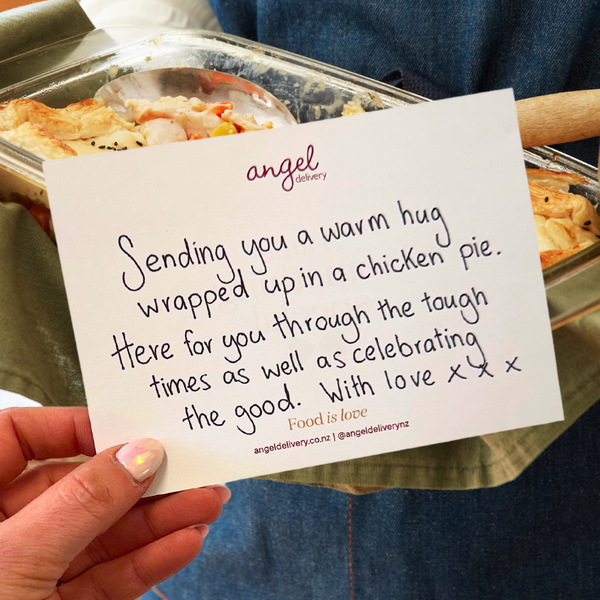 angel
delivery
Sending you a warm hug
wrapped up in a chicken pie.
Here for you through the tough
times as well as celebrating
the good. With love x x x
Food is love
angeldelivery.co.nz | @angeldeliverynz